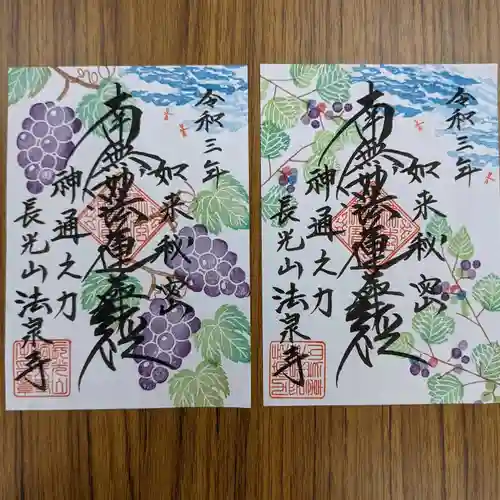 令和三年
如来秘密
南無妙法蓮華経
神通之力
長光山法泉寺
令和三年
如来秘密
南無妙法蓮華経
神通之力
長光山法泉寺